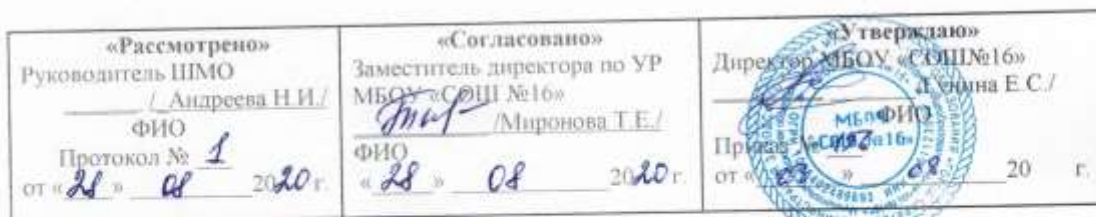 «Рассмотрено»
Руководитель ШМО
/ Андреева Н.И./
ФИО
Протокол № 1
от « 28 » 08 2020 г.
«Согласовано»
Заместитель директора по УР
МБОУ «СОШ №16»
/Миронова Т.Е./
ФИО
« 28 » 08 2020 г.
«Утверждаю»
Директор МБОУ «СОШ№16»
Е.С./
ФИО
Приказ №
от « » 08 20 г.
МБОУ
«СОШ №16»